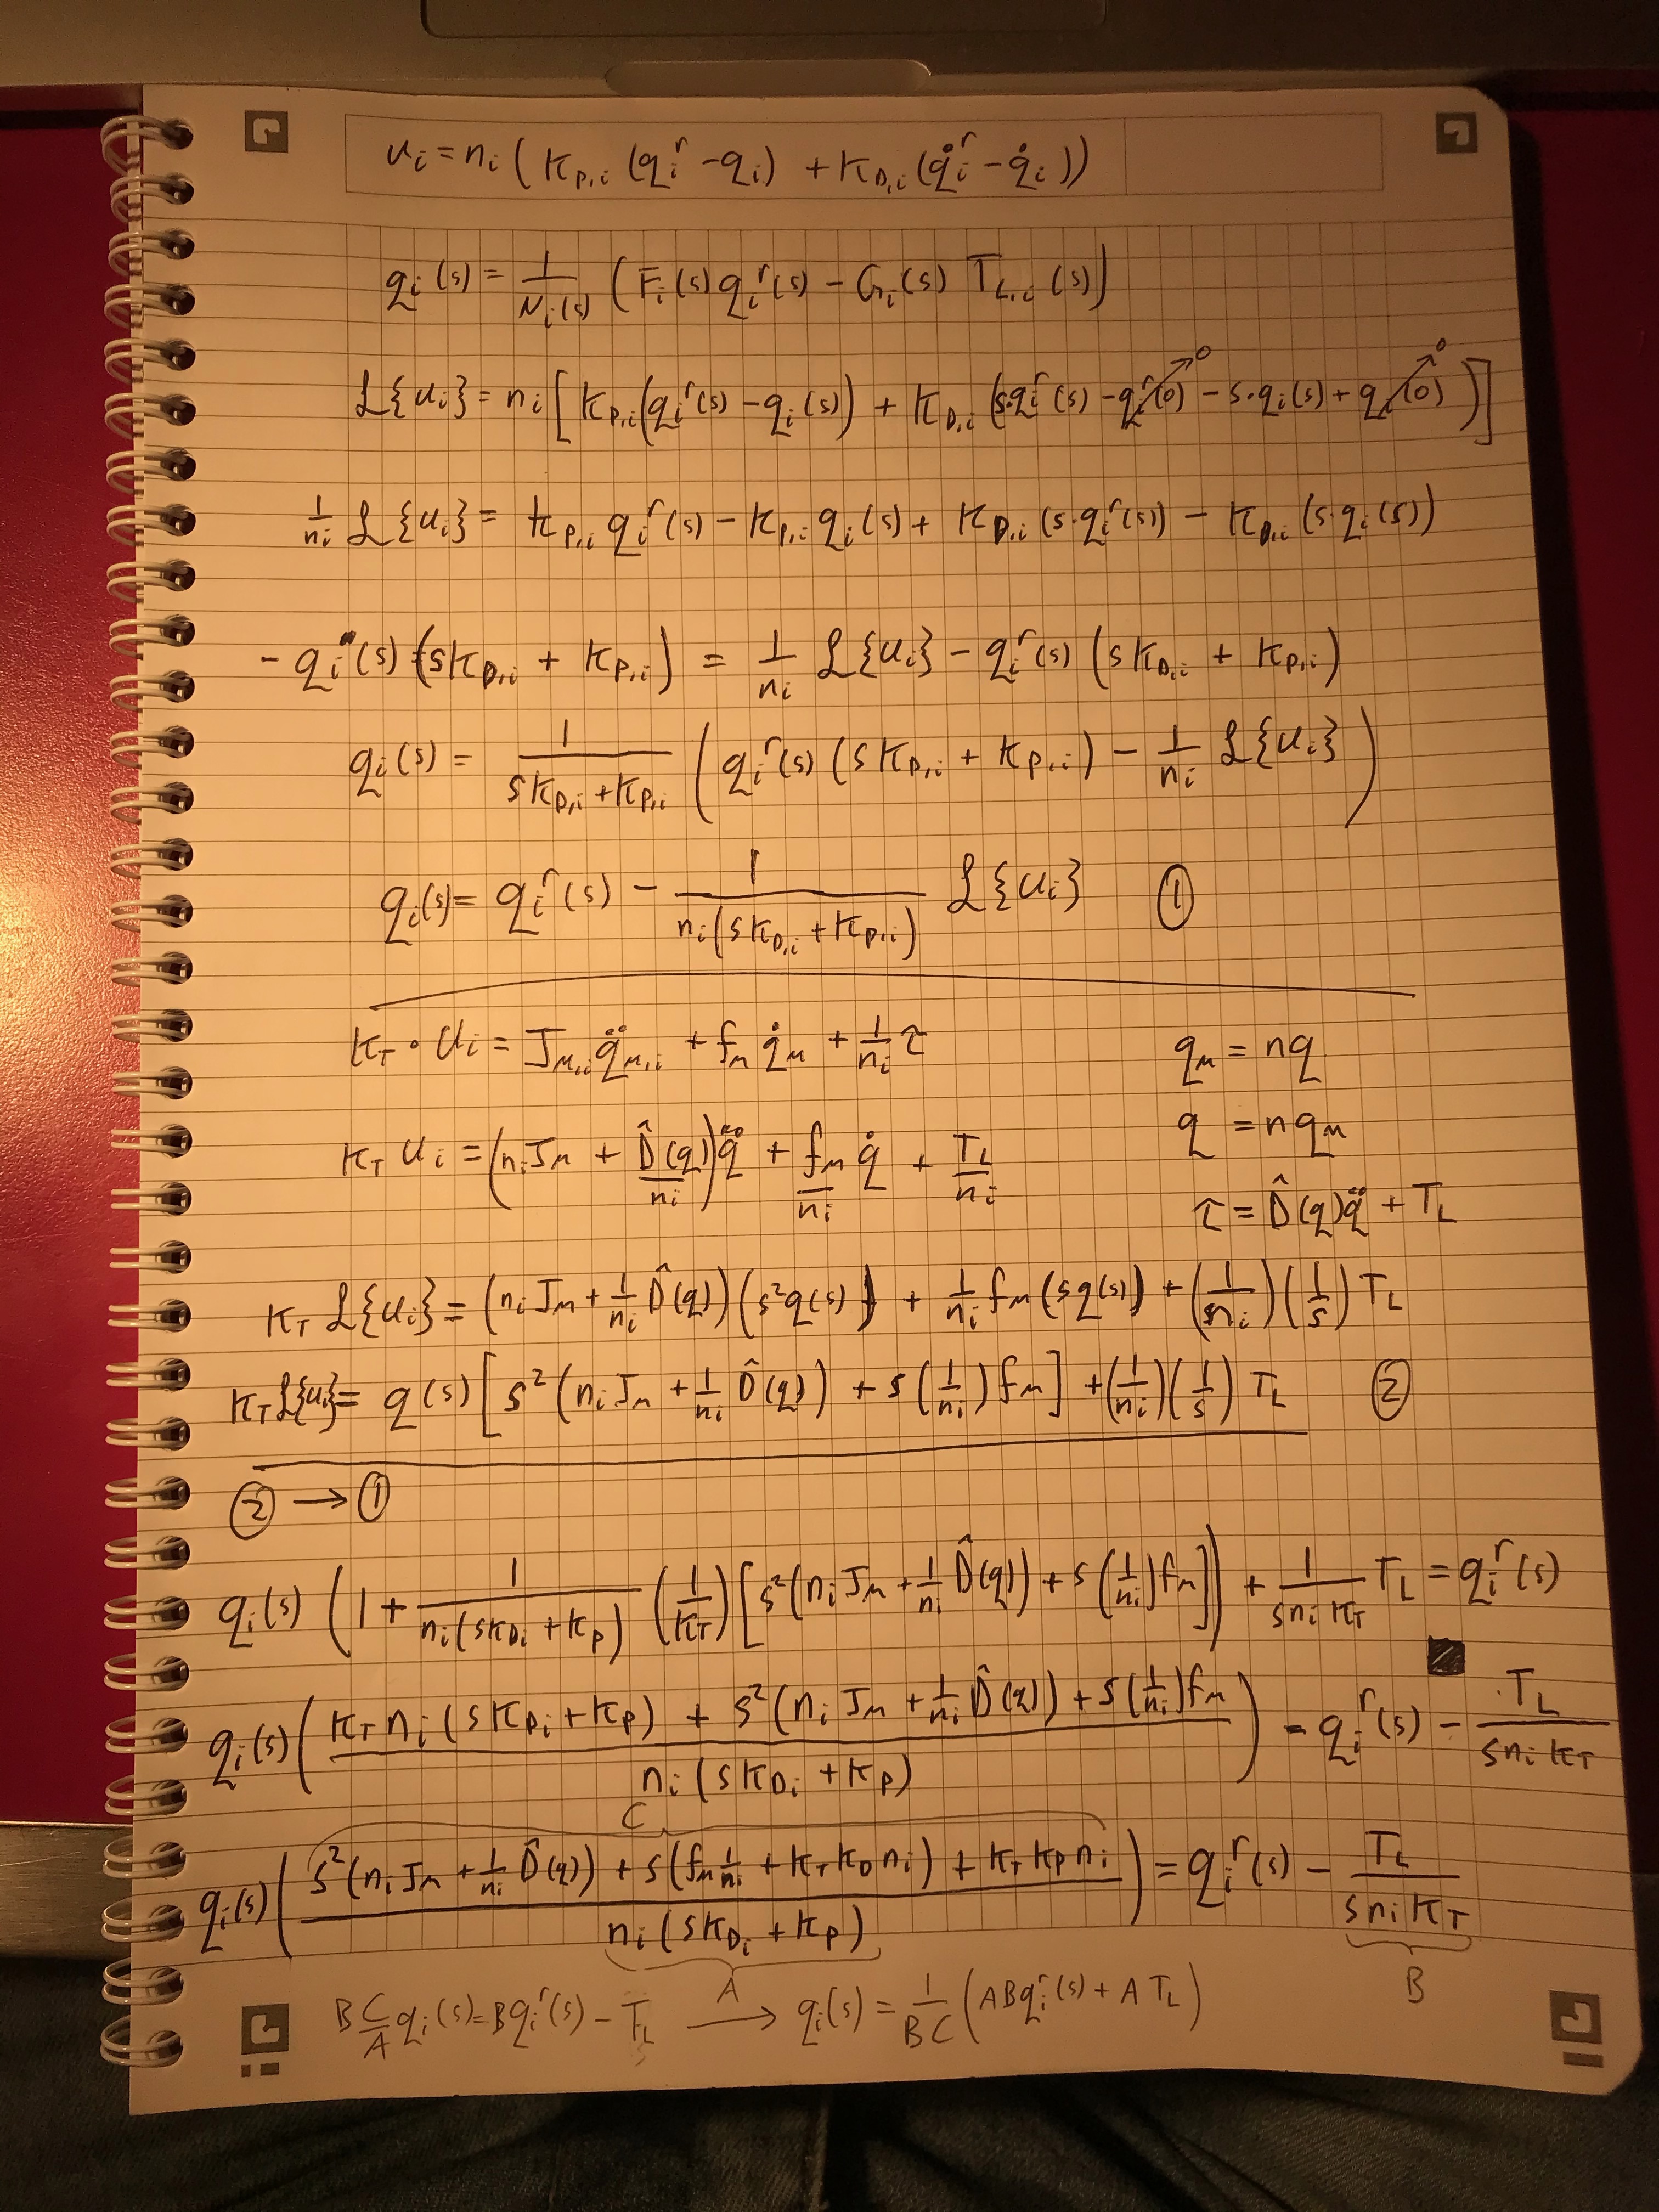 u_i = n_i ( K_{P,i} (q_i^r - q_i) + K_{D,i} (q̇_i^r - q̇_i))
q_i(s) = \frac{1}{N_i(s)} (F_i(s) q_i^r(s) - G_i(s) T_{L,i}(s))
ℒ{u_i} = n_i [K_{P,i}(q_i^r(s) - q_i(s)) + K_{D,i} (s·q_i^r(s) - q_i^r(0) → 0 - s·q_i(s) + q_i(0) → 0)]
\frac{1}{n_i} ℒ{u_i} = K_{P,i} q_i^r(s) - K_{P,i} q_i(s) + K_{D,i} (s·q_i^r(s)) - K_{D,i} (s·q_i(s))
- q_i(s) (sK_{D,i} + K_{P,i}) = \frac{1}{n_i} ℒ{u_i} - q_i^r(s) (sK_{D,i} + K_{P,i})
q_i(s) = \frac{1}{sK_{D,i} + K_{P,i}} ( q_i^r(s) (sK_{D,i} + K_{P,i}) - \frac{1}{n_i} ℒ{u_i} )
q_i(s) = q_i^r(s) - \frac{1}{n_i(sK_{D,i} + K_{P,i})} ℒ{u_i} ①
K_T · u_i = J_{M,i} q̈_{M,i} + f_M q̇_M + \frac{1}{n_i} τ
q_M = nq
q = nq_M
K_T u_i = (n_i J_M + \frac{D̂(q)}{n_i}) q̈ + \frac{f_M}{n_i} q̇ + \frac{T_L}{n_i}
τ = D̂(q)q̈ + T_L
K_T ℒ{u_i} = (n_i J_M + \frac{1}{n_i} D̂(q)) (s²q(s)) + \frac{1}{n_i} f_M (sq(s)) + (\frac{1}{n_i})(\frac{1}{s}) T_L
K_T ℒ{u_i} = q(s) [s² (n_i J_M + \frac{1}{n_i} D̂(q)) + s(\frac{1}{n_i}) f_M] + (\frac{1}{n_i})(\frac{1}{s}) T_L ②
② → ①
q_i(s) (1 + \frac{1}{n_i(sK_{D_i} + K_P)} (\frac{1}{K_T}) [s²(n_i J_M + \frac{1}{n_i} D̂(q)) + s(\frac{1}{n_i}) f_M]) + \frac{1}{s n_i K_T} T_L = q_i^r(s)
q_i(s) ( \frac{K_T n_i (sK_{D_i} + K_P) + s²(n_i J_M + \frac{1}{n_i} D̂(q)) + s(\frac{1}{n_i}) f_M}{n_i (sK_{D_i} + K_P)} ) = q_i^r(s) - \frac{T_L}{s n_i K_T}
C
q_i(s) ( \frac{s²(n_i J_M + \frac{1}{n_i} D̂(q)) + s(f_M \frac{1}{n_i} + K_T K_D n_i) + K_T K_P n_i}{n_i (sK_{D_i} + K_P)} ) = q_i^r(s) - \frac{T_L}{s n_i K_T}
A
B
B\frac{C}{A} q_i(s) = B q_i^r(s) - T_L → q_i(s) = \frac{1}{BC} (AB q_i^r(s) + A T_L)